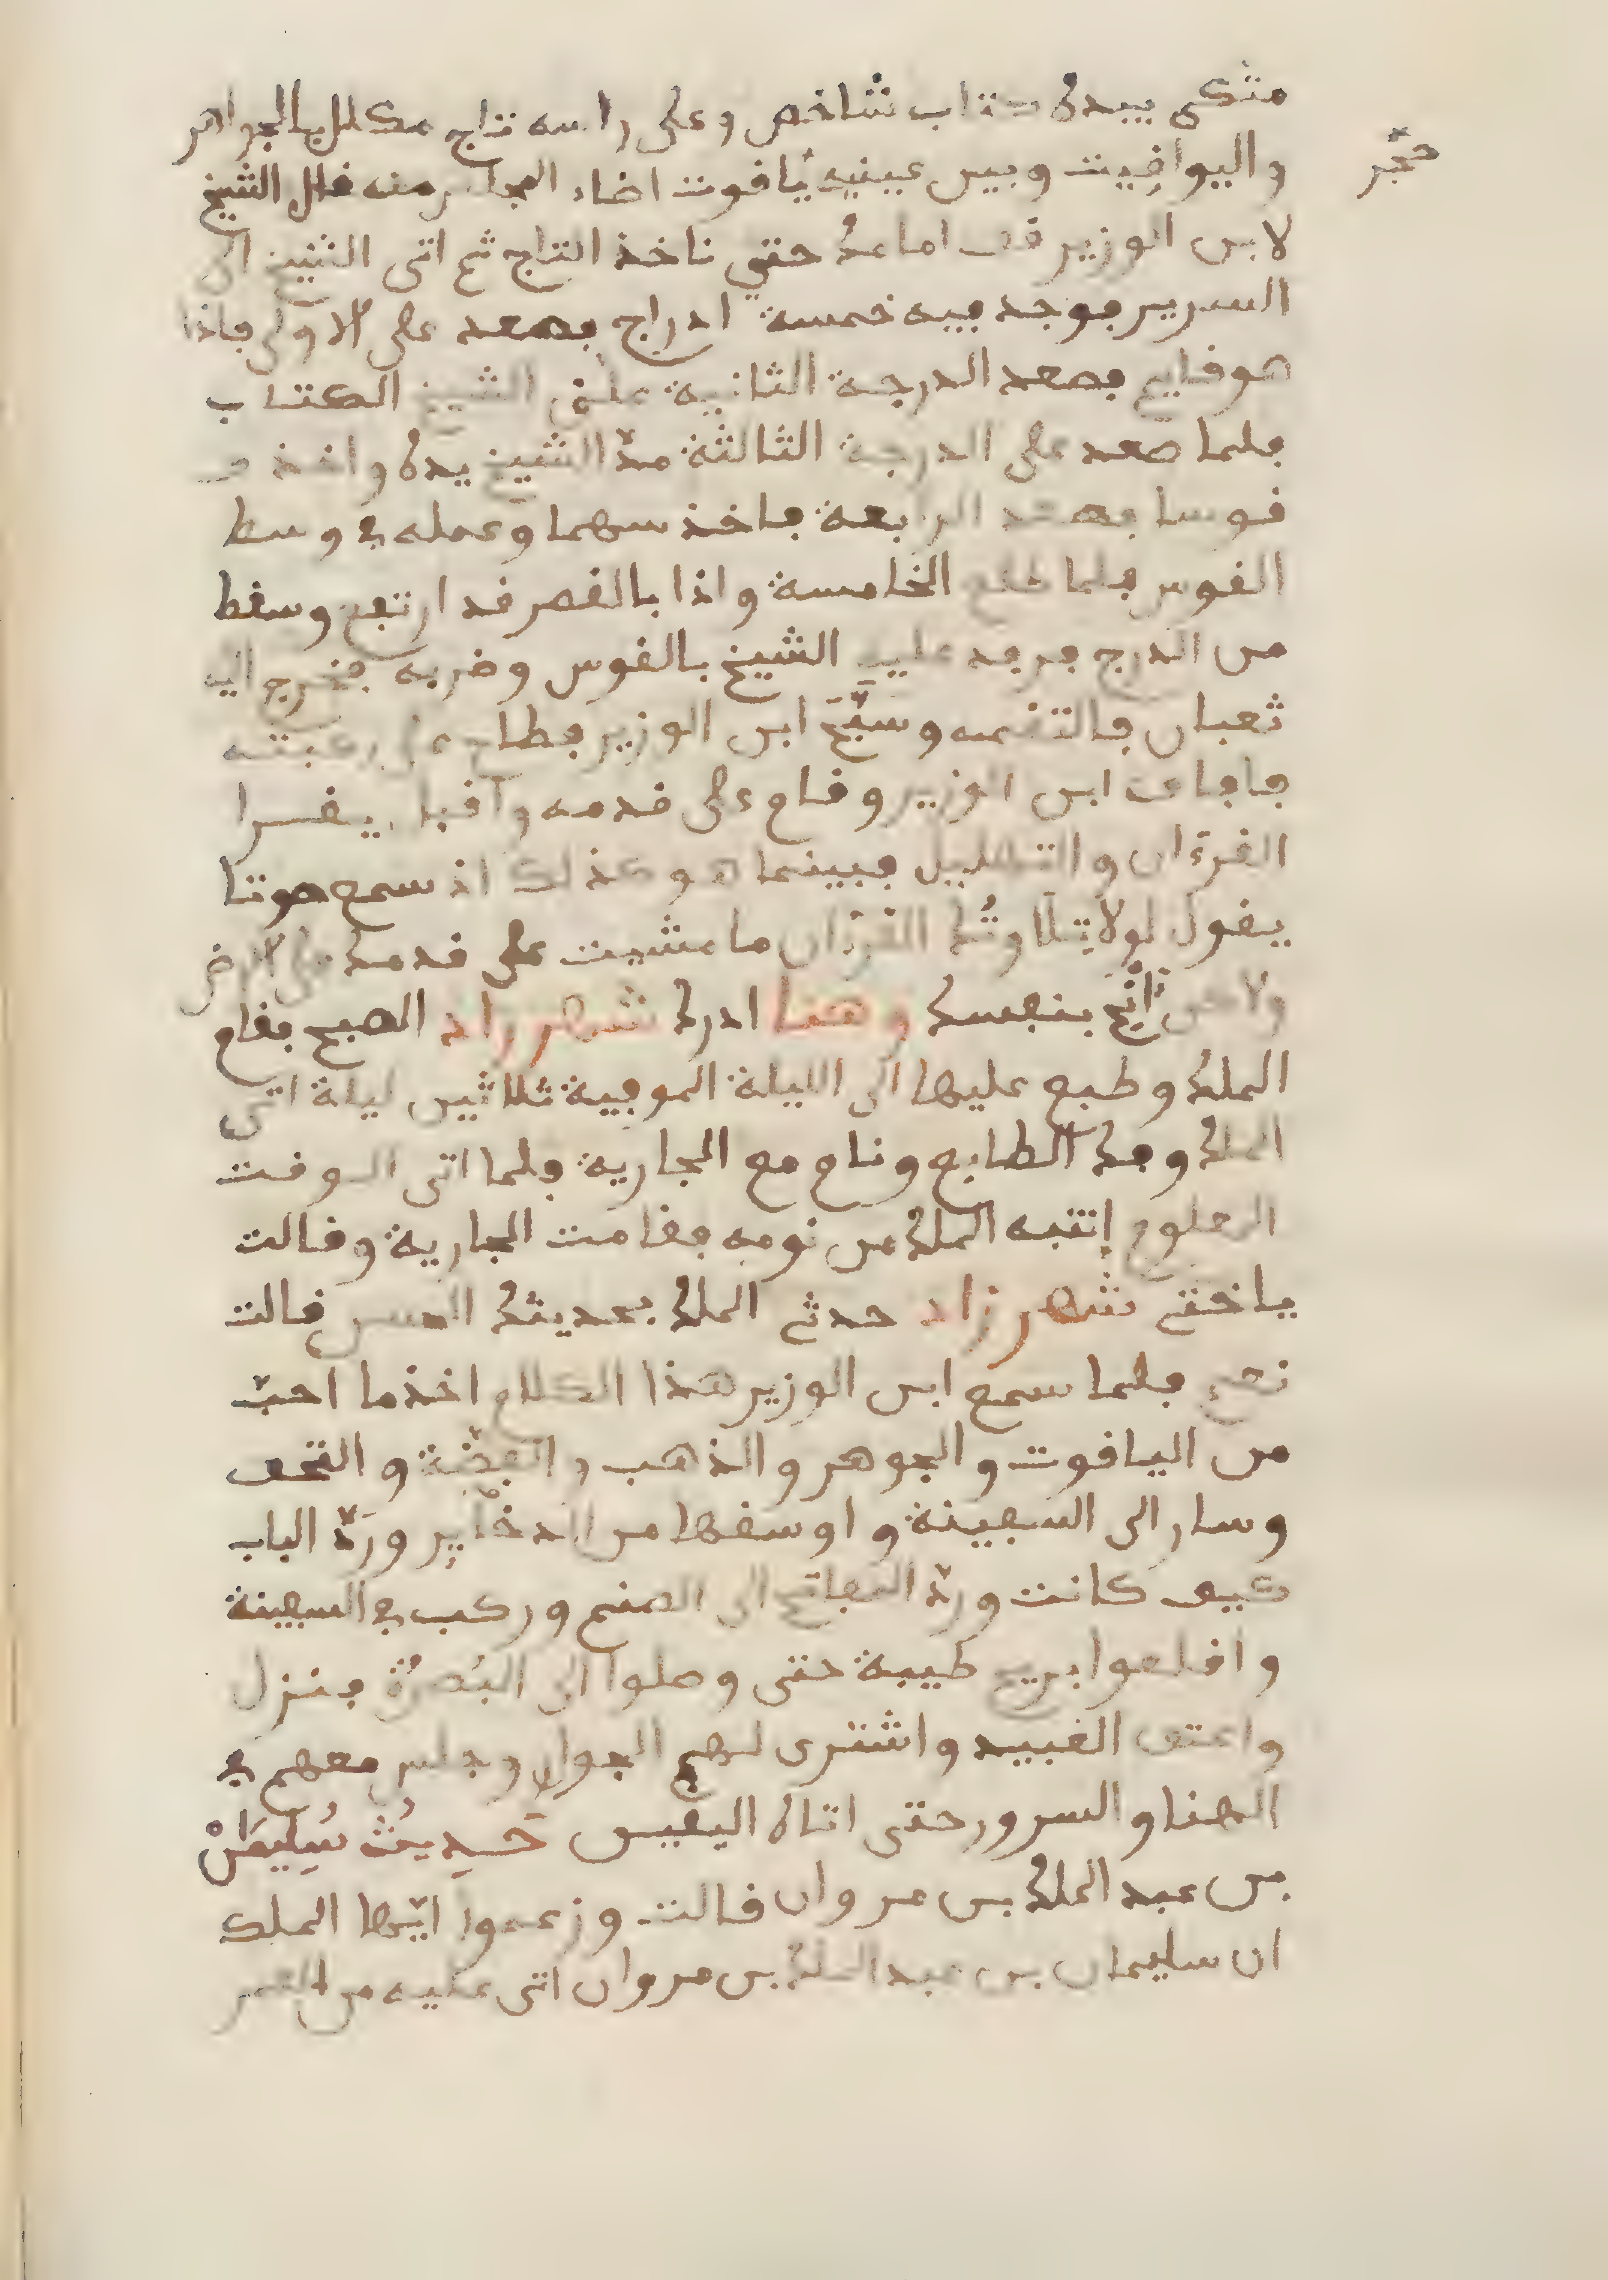 متكى بيده كتاب شاخص وعلى راسه تاج مكلل بالجواهر
حجر
واليواقيت وبين عينيه ياقوت اضاء المجلس منه قال الشيخ
لابن الوزير قف امامك حتي ناخذ التاج ثم اتى الشيخ الى
السرير فوجد فيه خمسة ادراج فصعد على الاولى فاذا
هو قايم فصعد الدرجة الثانية الشيخ الكتاب
فلما صعد على الدرجة الثالثة مدّ الشيخ يده واخذ
قوسا فصعد الرابعة فاخذ سهما وعمله في وسط
القوس فلما طلع الخامسة واذا بالقصر قد ارتفع وسقط
من الدرج عليه الشيخ بالقوس وضربه فخرج اليه
ثعبان فالتقمه وسبّح ابن الوزير فطاح على
فافاق ابن الوزير وقام على قدمه واقبل يقرا
القرءان والتهليل فبينما هو كذلك اذ سمع صوتا
يقول لولا تلاوتُك القرءان ما مشيت على قدمك على الارض
ولاكن انج بنفسك وهنا ادرك شهرزاد الصبح فقام
الملك وطبع عليها الى الليلة الموفية ثلاثين ليلة اتى
الملك وفك الطابع ونام مع الجارية فلما اتى الوقت
المعلوم إنتبه الملك من نومه فقامت الجارية وقالت
ياختي شهرزاد حدثي الملك بحديثك الحسن قالت
نعم فلما سمع ابن الوزير هذا الكلام اخذ ما احبّ
من الياقوت والجوهر والذهب والفضّة والتحف
وسار الى السفينة واوسقها من الدخاير وردّ الباب
كيف كانت وردّ المفاتح الى الصنم وركب في السفينة
واقلعوا بريح طيبة حتى وصلوا الى البُصرة فنزل
واعتق العبيد واشترى لهم الجوار وجلس معهم في
الهنا والسرور حتى اتاه اليقين حَدِيثُ سُلِيمَانْ
بن عبد الملك بن مروان قالت وزعموا ايّها الملك
ان سليمان بن عبد الملك بن مروان اتى عليه من العمر